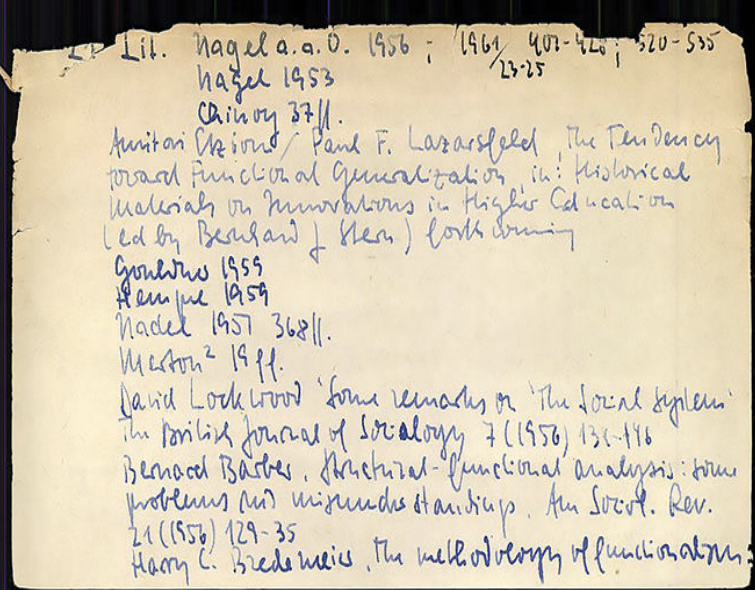 Lit. Nagel a.a.O. 1956 ; 1961/ 401-428 ; 520-535
23-25
Nagel 1953
Chinoy 37 ff.
Amitai Etzioni / Paul F. Lazarsfeld, The Tendency
toward Functional Generalization, in: Historical
Materials on Innovations in Higher Education
(ed by Bernhard J Stern) forthcoming
Gouldner 1959
Hempel 1959
Nadel 1957 368 ff.
Merton² 19 ff.
David Lockwood 'Some remarks on 'The Social System'
The British Journal of Sociology 7 (1956) 134-146
Bernard Barber, Structural-functional analysis: some
problems and misunderstandings. Am Sociol. Rev.
21 (1956) 129-35
Harry C. Bredemeier, The methodology of functionalism: